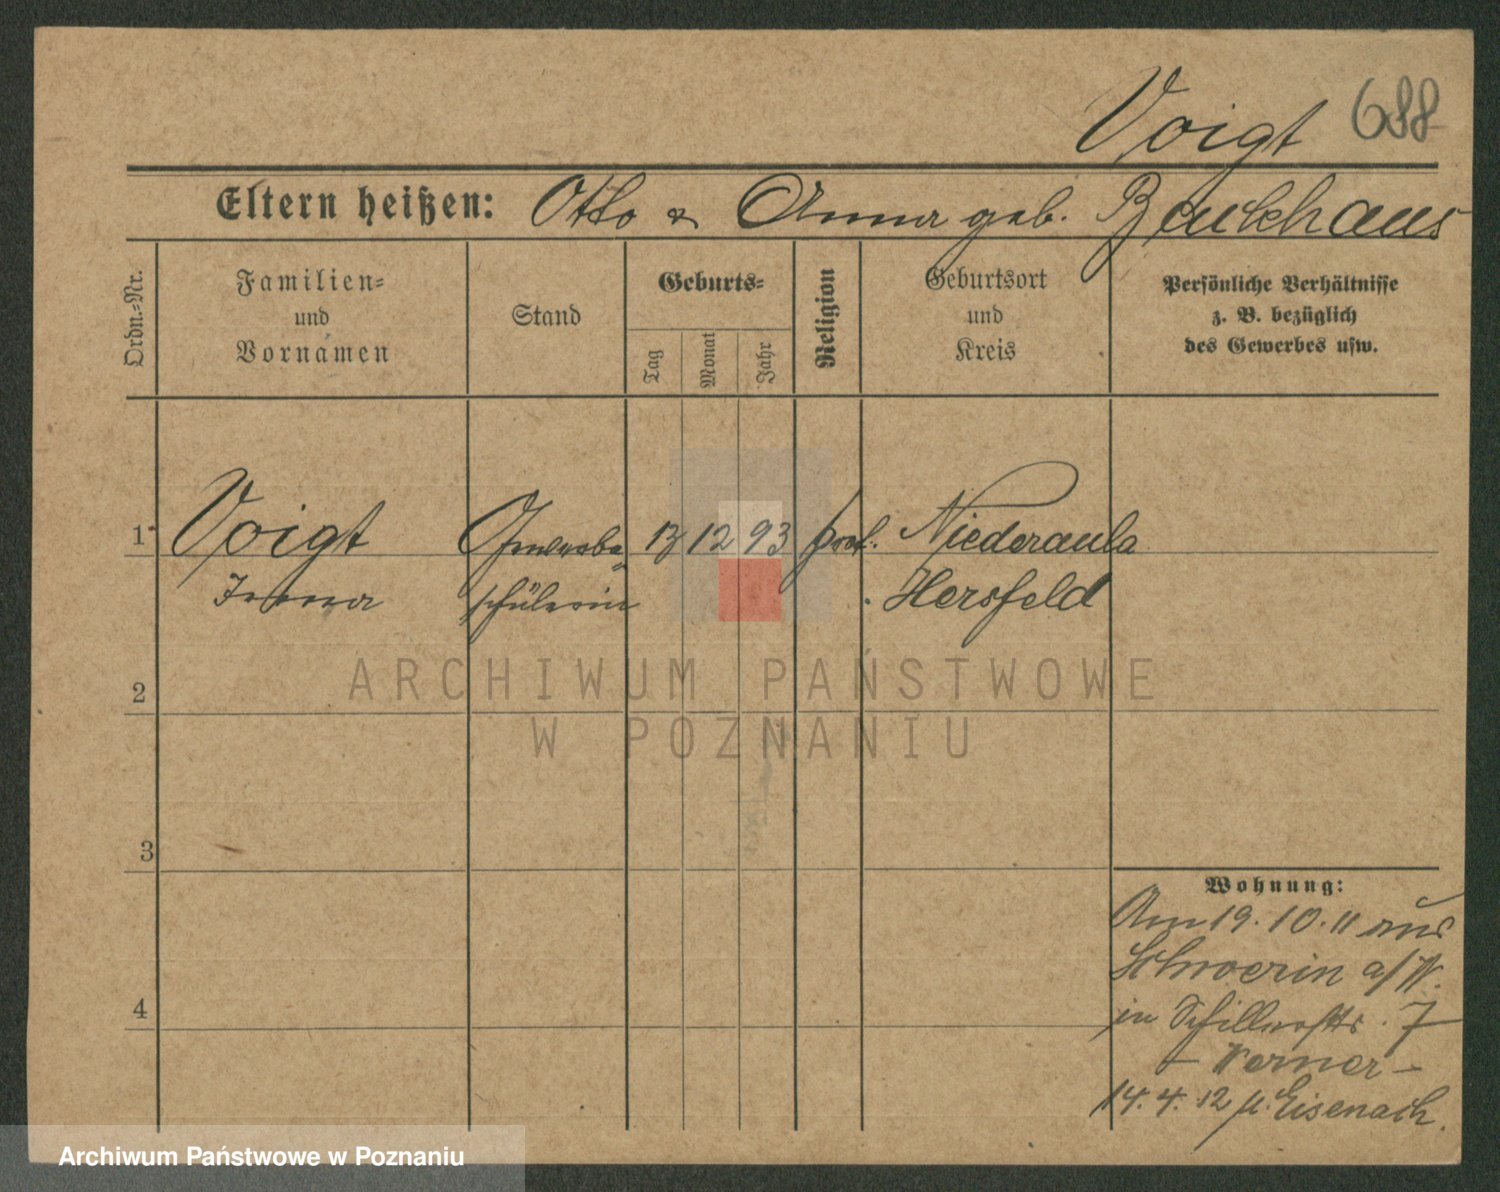 Voigt 688
Eltern heißen: Otto & Anna geb.
Ordn.-Nr.
Familien-
und
Vornamen
Stand
Geburts-
Tag
Monat
Jahr
Religion
Geburtsort
und
Kreis
Persönliche Verhältnisse
z. B. bezüglich
des Gewerbes usw.
1 Voigt Gewerbe- 13 12 93 prot. Niederaula
schülerin Hersfeld
2
3
4
Wohnung:
Am 19.10.11 aus
Schwerin a/W.
in Schillerstr. 7
- Werner -
14.4.12 n. Eisenach.
ARCHIWUM PAŃSTWOWE
W POZNANIU
Archiwum Państwowe w Poznaniu